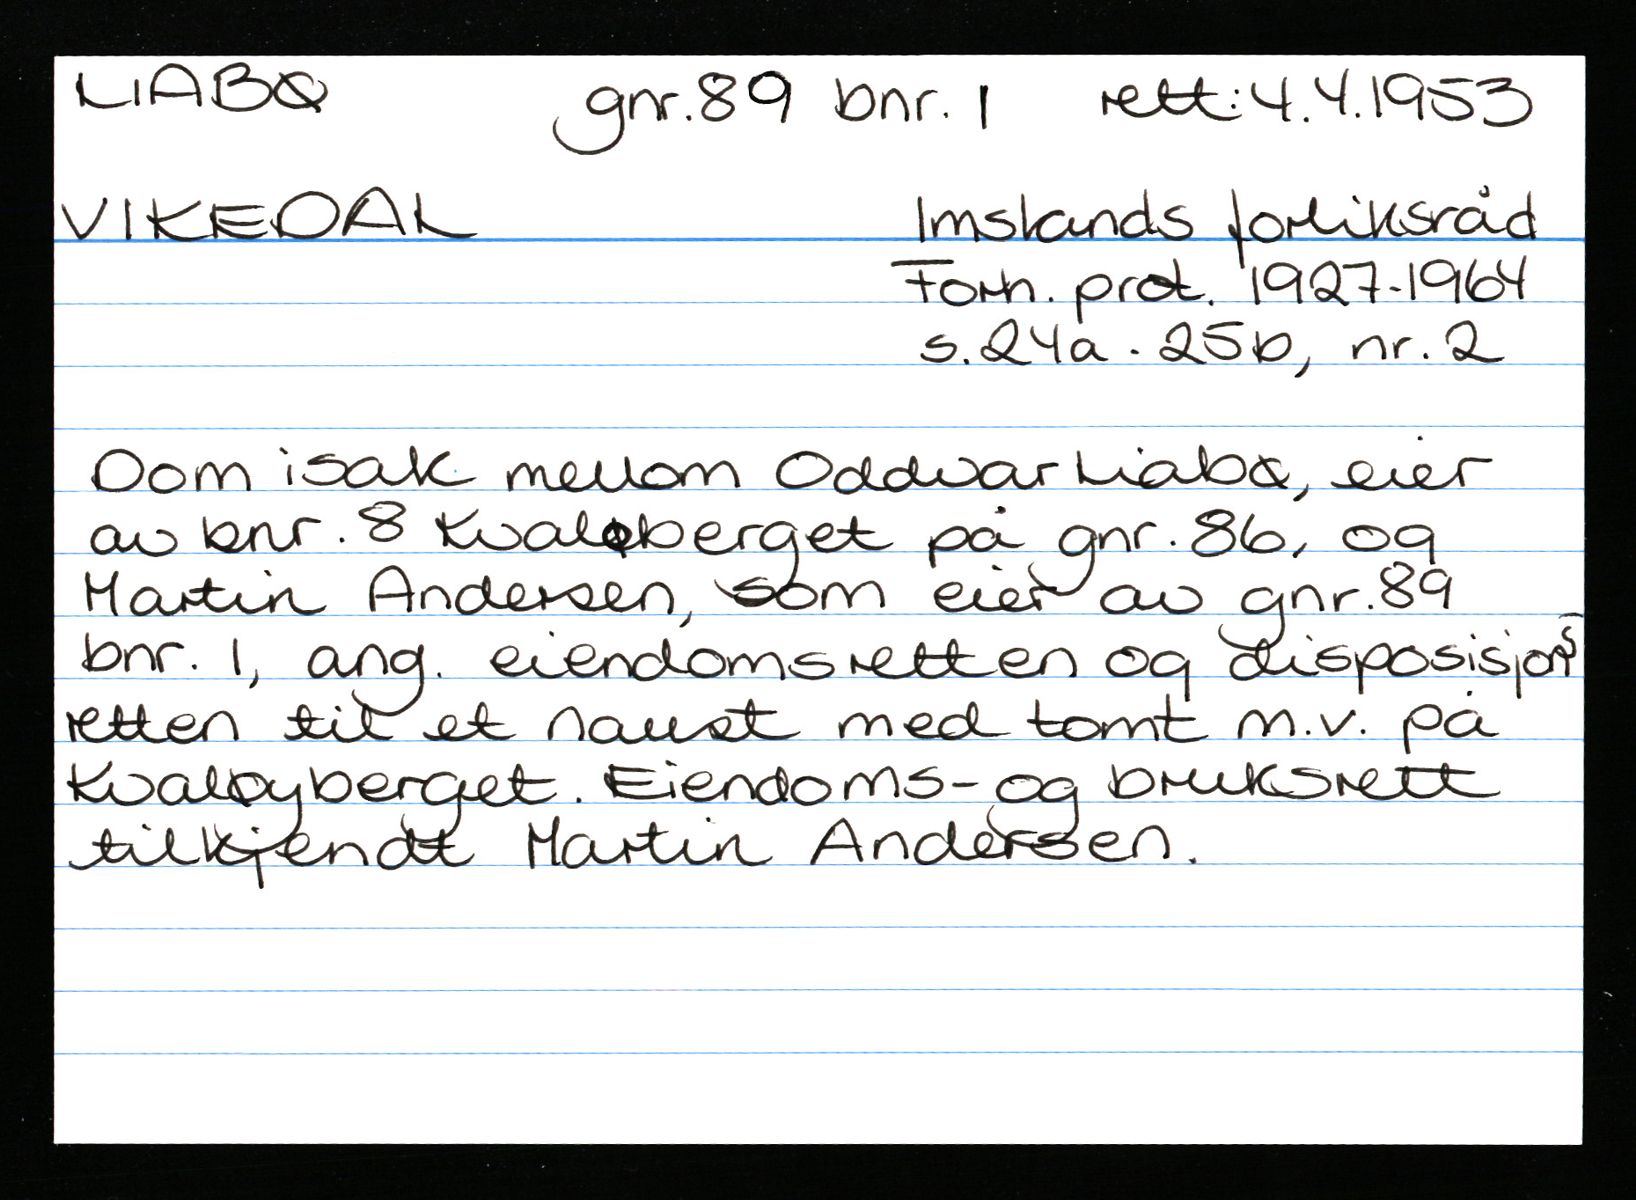 LIABØ gnr. 89 bnr. 1 rett: 4.4.1953
VIKEDAL Imslands forliksråd
Forh. prot. 1927-1964
s. 24a - 25b, nr. 2
Dom i sak mellom Oddvar Liabø, eier
av bnr. 8 Kvaløberget på gnr. 86, og
Martin Andersen, som eier av gnr. 89
bnr. 1, ang. eiendomsretten og disposisjons
retten til et naust med tomt m.v. på
Kvaløyberget. Eiendoms- og bruksrett
tilkjendt Martin Andersen.